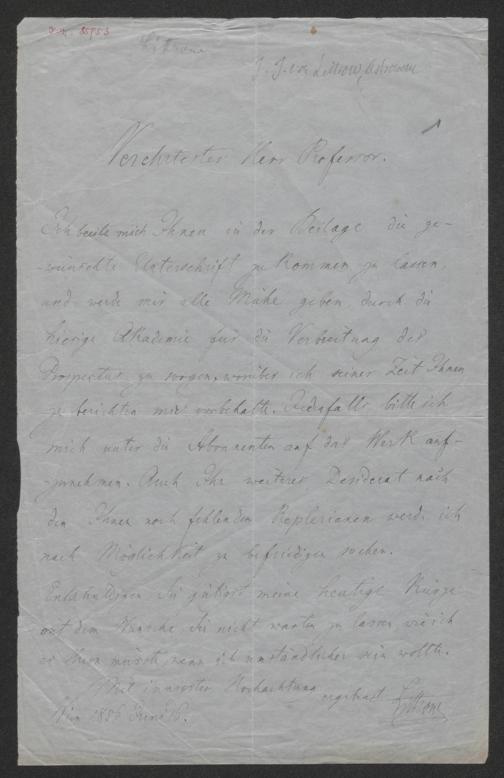 Littrow
J. J. von Littrow, Astronom
Verehrtester Herr Professor.
Ich beeile mich Ihnen in der Beilage die ge-
-wünschte Unterschrift zu kommen zu lassen,
und werde mir alle Mühe geben, durch die
hiesige Akademie für die Verbreitung des
Prospectus zu sorgen, worüber ich seiner Zeit Ihnen
zu berichten mir vorbehalte. Jedesfalls bitte ich
mich unter die Abonnenten auf das Werk auf-
-zunehmen. Auch Ihr weiteres Desiderat nach
den Ihnen noch fehlenden Keplerianen werde ich
nach Möglichkeit zu befriedigen suchen.
Entschuldigen Sie gütigst meine heutige Kürze
mit dem Wunsche Sie nicht warten zu lassen, wie ich
es thun müsste, wenn ich umständlicher sein wollte.
Mit innigster Hochachtung ergebenst Littrow
Wien 1856 16.